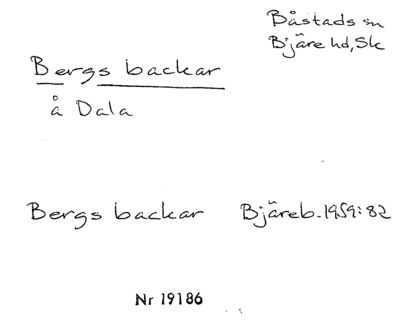 Båstads sn
Bjäre hd, Sk
Bergs backar
å Dala
Bergs backar Bjäreb. 1959:82
Nr 19186